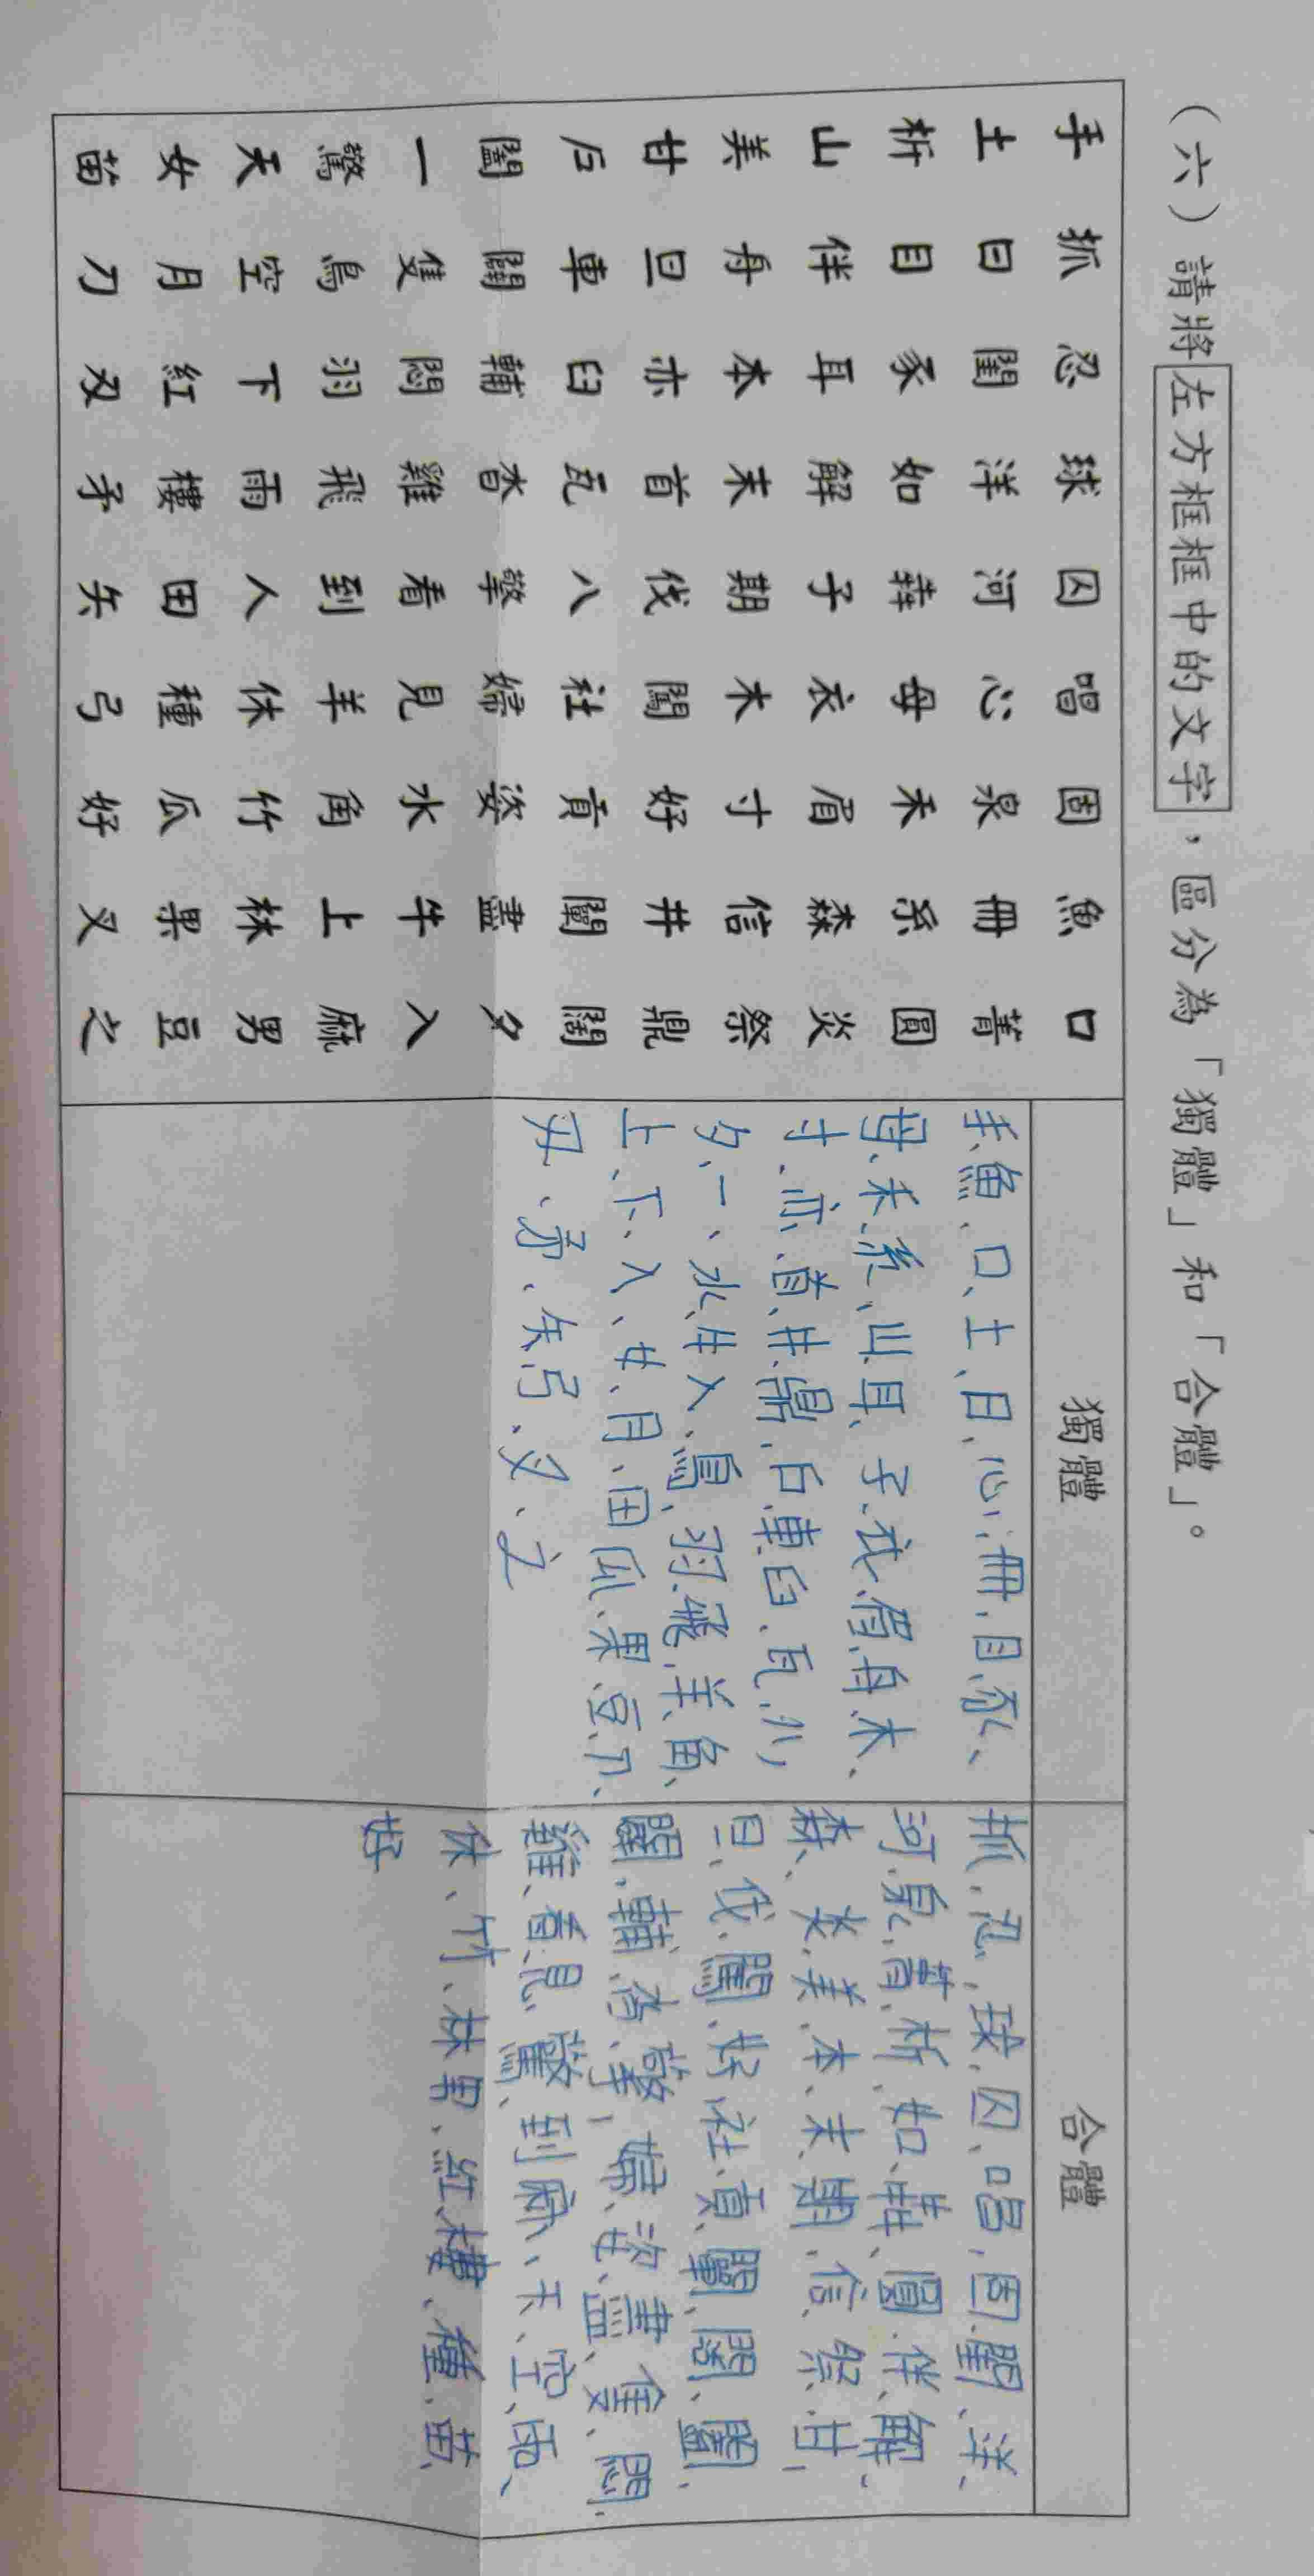 (六)請將左方框框中的文字，區分為「獨體」和「合體」。
手 抓 忍 球 囚 唱 固 魚 口
土 日 閨 洋 河 心 泉 冊 菁
析 目 豕 如 犇 母 禾 系 圓
山 伴 耳 解 子 衣 眉 森 炎
美 舟 本 末 期 木 寸 信 祭
甘 旦 亦 首 伐 闖 好 井 鼎
石 車 臼 瓦 八 社 貢 闈 闊
闔 闢 輔 杳 擎 婦 姿 盡 夕
一 隻 悶 雞 看 見 水 牛 入
驚 鳥 羽 飛 到 羊 角 上 麻
天 空 下 雨 人 休 竹 林 男
女 月 紅 樓 田 種 瓜 果 豆
苗 刀 刃 矛 矢 弓 好 叉 之
獨體
手、魚、口、土、日、心、冊、目、豕、
母、禾、系、山、耳、子、衣、眉、舟、木、
寸、亦、首、井、鼎、石、車、臼、瓦、八、
夕、一、水、牛、入、鳥、羽、飛、羊、角、
上、下、人、女、月、田、瓜、果、豆、刀、
刃、矛、矢、弓、叉、之
合體
抓、忍、球、囚、唱、固、閨、洋、
河、泉、菁、析、如、犇、圓、伴、解、
森、炎、美、本、末、期、信、祭、甘、
旦、伐、闖、好、社、貢、闈、闊、闔、
闢、輔、杳、擎、婦、姿、盡、隻、悶、
雞、看、見、驚、到、麻、天、空、雨、
休、竹、林、男、紅、樓、種、苗、
好